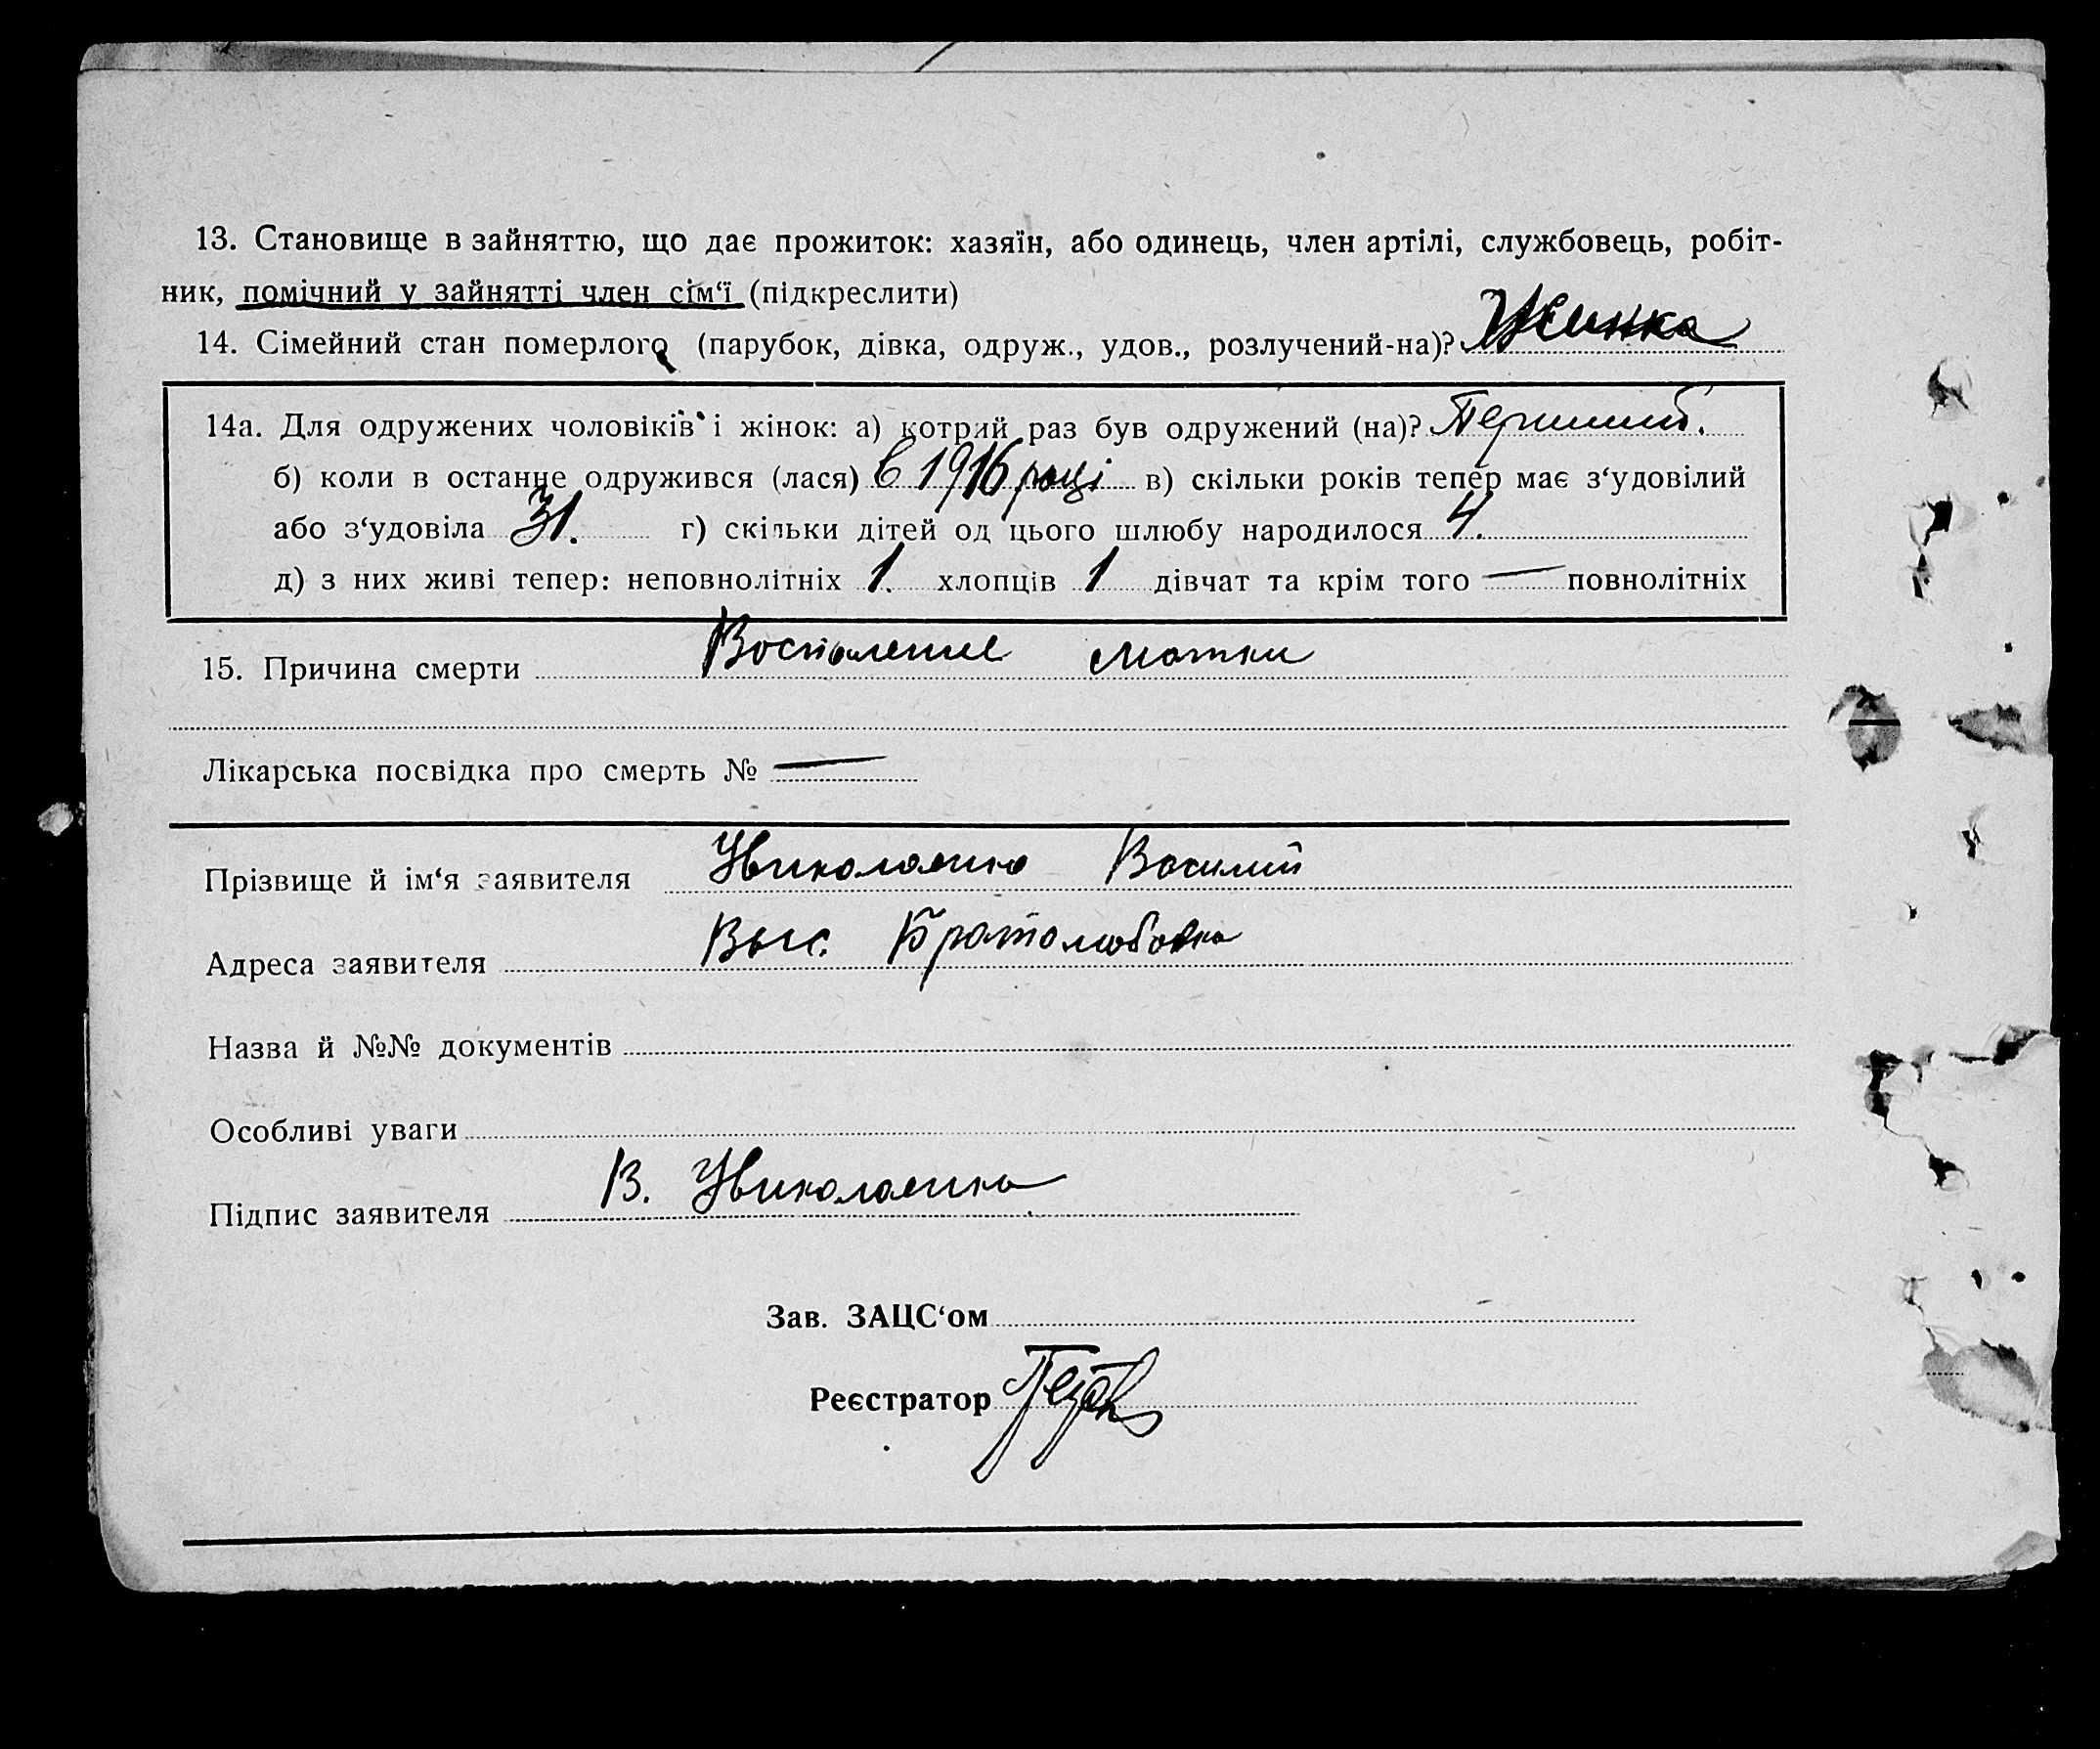 13. Становище в зайняттю, що дає прожиток: хазяїн, або одинець, член артілі, службовець, робіт-
ник, помічний у зайнятті член сім‘ї (підкреслити)
14. Сімейний стан померлого (парубок, дівка, одруж., удов., розлучений-на)? Жинка
14а. Для одружених чоловіків і жінок: а) котрий раз був одружений (на)? Першиш.
б) коли в останнє одружився (лася) в 1916 році в) скільки років тепер має з‘удовілий
або з‘удовіла 31. г) скільки дітей од цього шлюбу народилося 4.
д) з них живі тепер: неповнолітніх 1. хлопців 1 дівчат та крім того — повнолітніх
15. Причина смерти Воспаление матки
Лікарська посвідка про смерть № —
Прізвище й ім‘я заявителя Василий
Адреса заявителя Выс. Братолюбовка
Назва й №№ документів
Особливі уваги
Підпис заявителя В.
Зав. ЗАЦС‘ом
Реєстратор